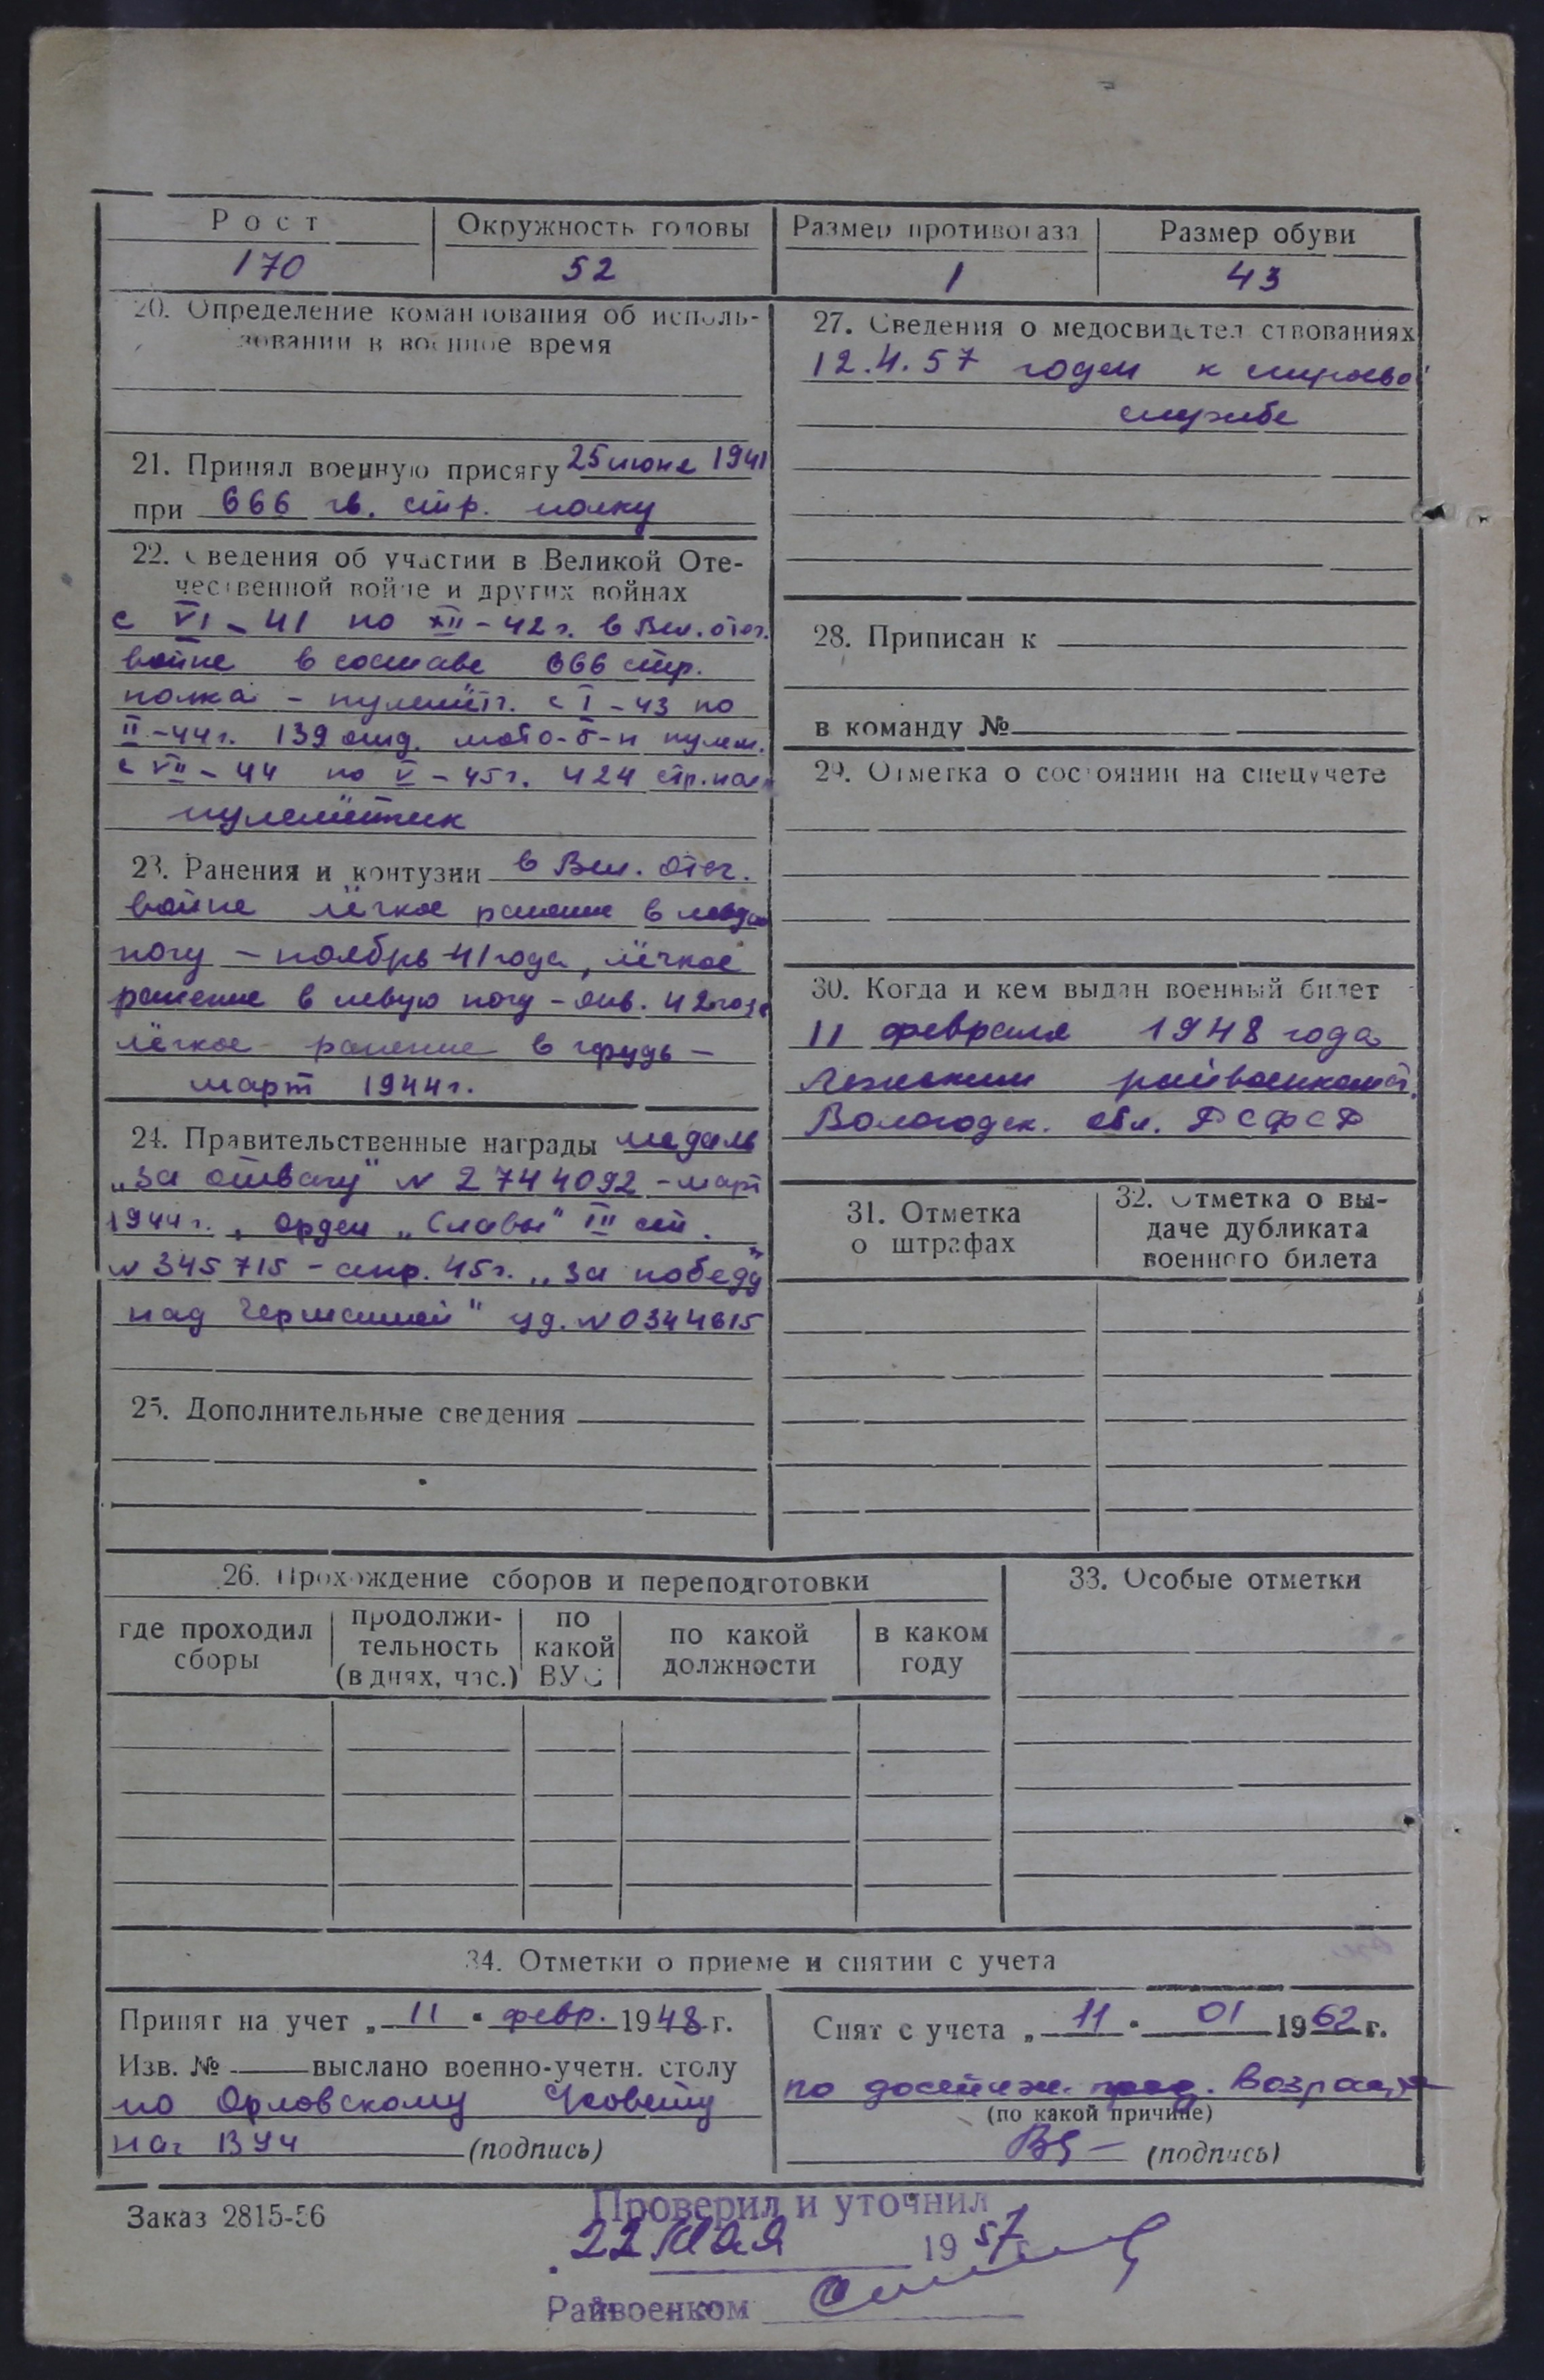 Рост
Окружность головы
Размер противогаза
Размер обуви
170
52
1
43
20. Определение командования об исполь-
зовании в военное время
21. Принял военную присягу 25 июня 1941
при 666 гв. стр. полку
22. Сведения об участии в Великой Оте-
чественной войне и других войнах
с VI-41 по XII-42 г. в Вел. отеч.
войне в составе 666 стр.
полка - пулемётч. с I-43 по
II-44 г. 139 отд. мото-б-н пулем.
с VII-44 по V-45 г. 424 стр. пол
пулемётчик
23. Ранения и контузии в Вел. отеч.
войне лёгкое ранение в
ногу - ноябрь 41 года, лёгкое
ранение в левую ногу - янв. 42 года
лёгкое ранение в грудь -
март 1944 г.
24. Правительственные награды медаль
„За отвагу" N 2744092 - март
1944 г., орден „Славы" III ст.
N 345715 - апр. 45 г. „За победу
над Германией" уд. N 0344615
25. Дополнительные сведения
27. Сведения о медосвидетельствованиях
12.4.57 годен к строевой
службе
28. Приписан к
в команду №
29. Отметка о состоянии на спецучете
30. Когда и кем выдан военный билет
11 февраля 1948 года
райвоенкомат.
Вологодск. обл. РСФСР
31. Отметка
о штрафах
32. Отметка о вы-
даче дубликата
военного билета
26. Прохождение сборов и переподготовки
где проходил
сборы
продолжи-
тельность
(в днях, час.)
по
какой
ВУС
по какой
должности
в каком
году
33. Особые отметки
34. Отметки о приеме и снятии с учета
Принят на учет „11" февр. 1948 г.
Изв. № выслано военно-учетн. столу
по Орловскому
нач ВУЧ (подпись)
Снят с учета „11" 01 1962 г.
по достиж. пред. возраста
(по какой причине)
(подпись)
Заказ 2815-56
Проверил и уточнил
22 мая 1957
Райвоенком